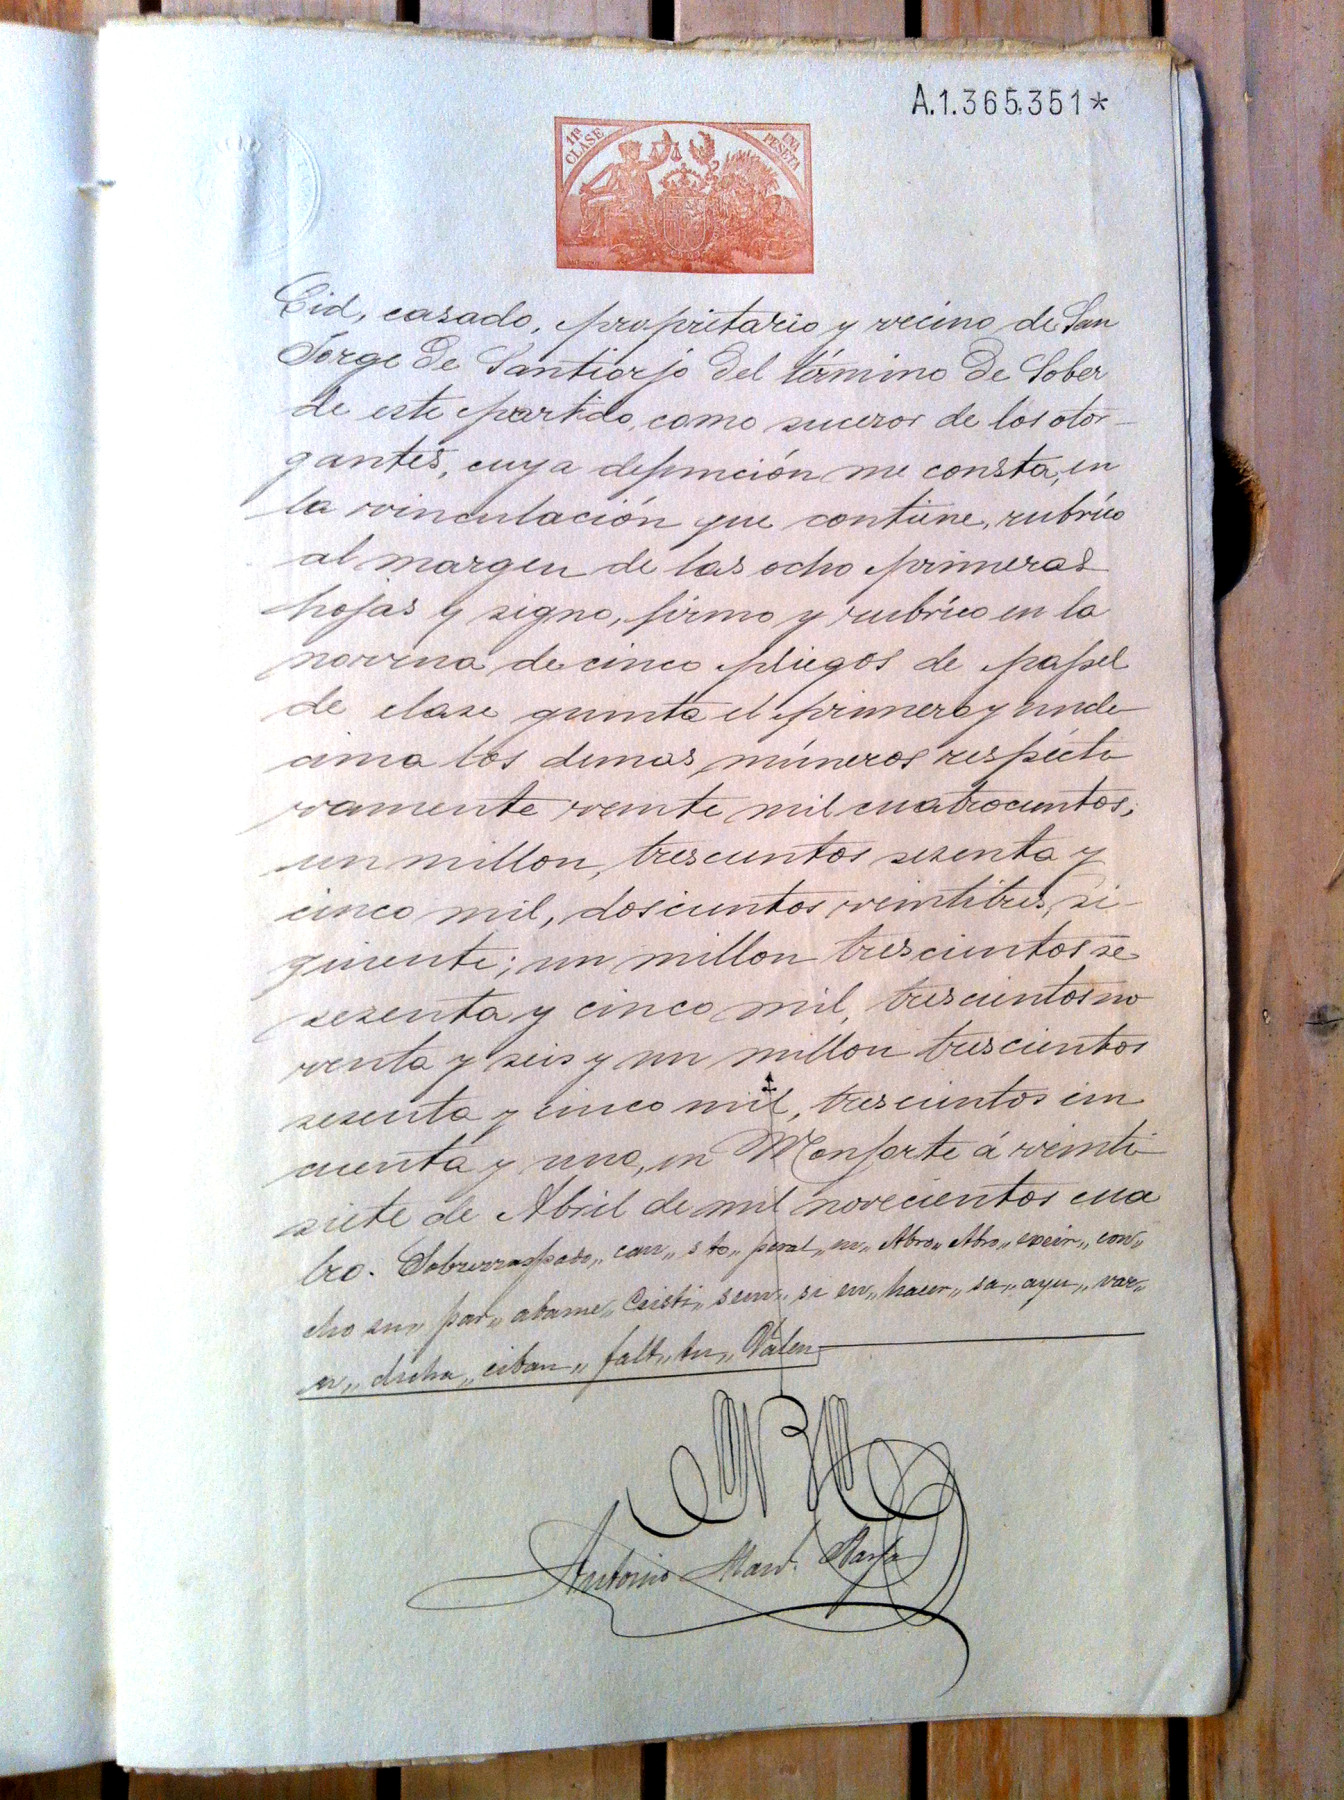 A.1.365.351*
11ª CLASE
UNA PESETA
Cid, casado, propietario y vecino de San
Jorge de Santiorjo del término de Sober
de este partido, como sucesor de los otor-
gantes, cuya defunción me consta, en
la vinculación que contiene, rubrico
al margen de las ocho primeras
hojas y signo, firmo y rubrico en la
novena de cinco pliegos de papel
de clase quinta el primero y unde
cima los demas, números respecti
vamente veinte mil cuatrocientos,
un millon, trescientos sesenta y
cinco mil, doscientos veintitres, si-
guiente; un millon trescientos se
sesenta y cinco mil, trescientos no
venta y seis y un millon trescientos
sesenta y cinco mil, trescientos cin
cuenta y uno, en Monforte á veinti
siete de Abril de mil novecientos cua
tro. Sobrerraspado,, can,, s to,, peral,, en,, Abro,, Abro,, con,,
cho su,, par,, abame,, Cristi,, se en,, hacer,, sa,, ayu,, var,,
dicha,, falt,, tu,, Valen
Antonio